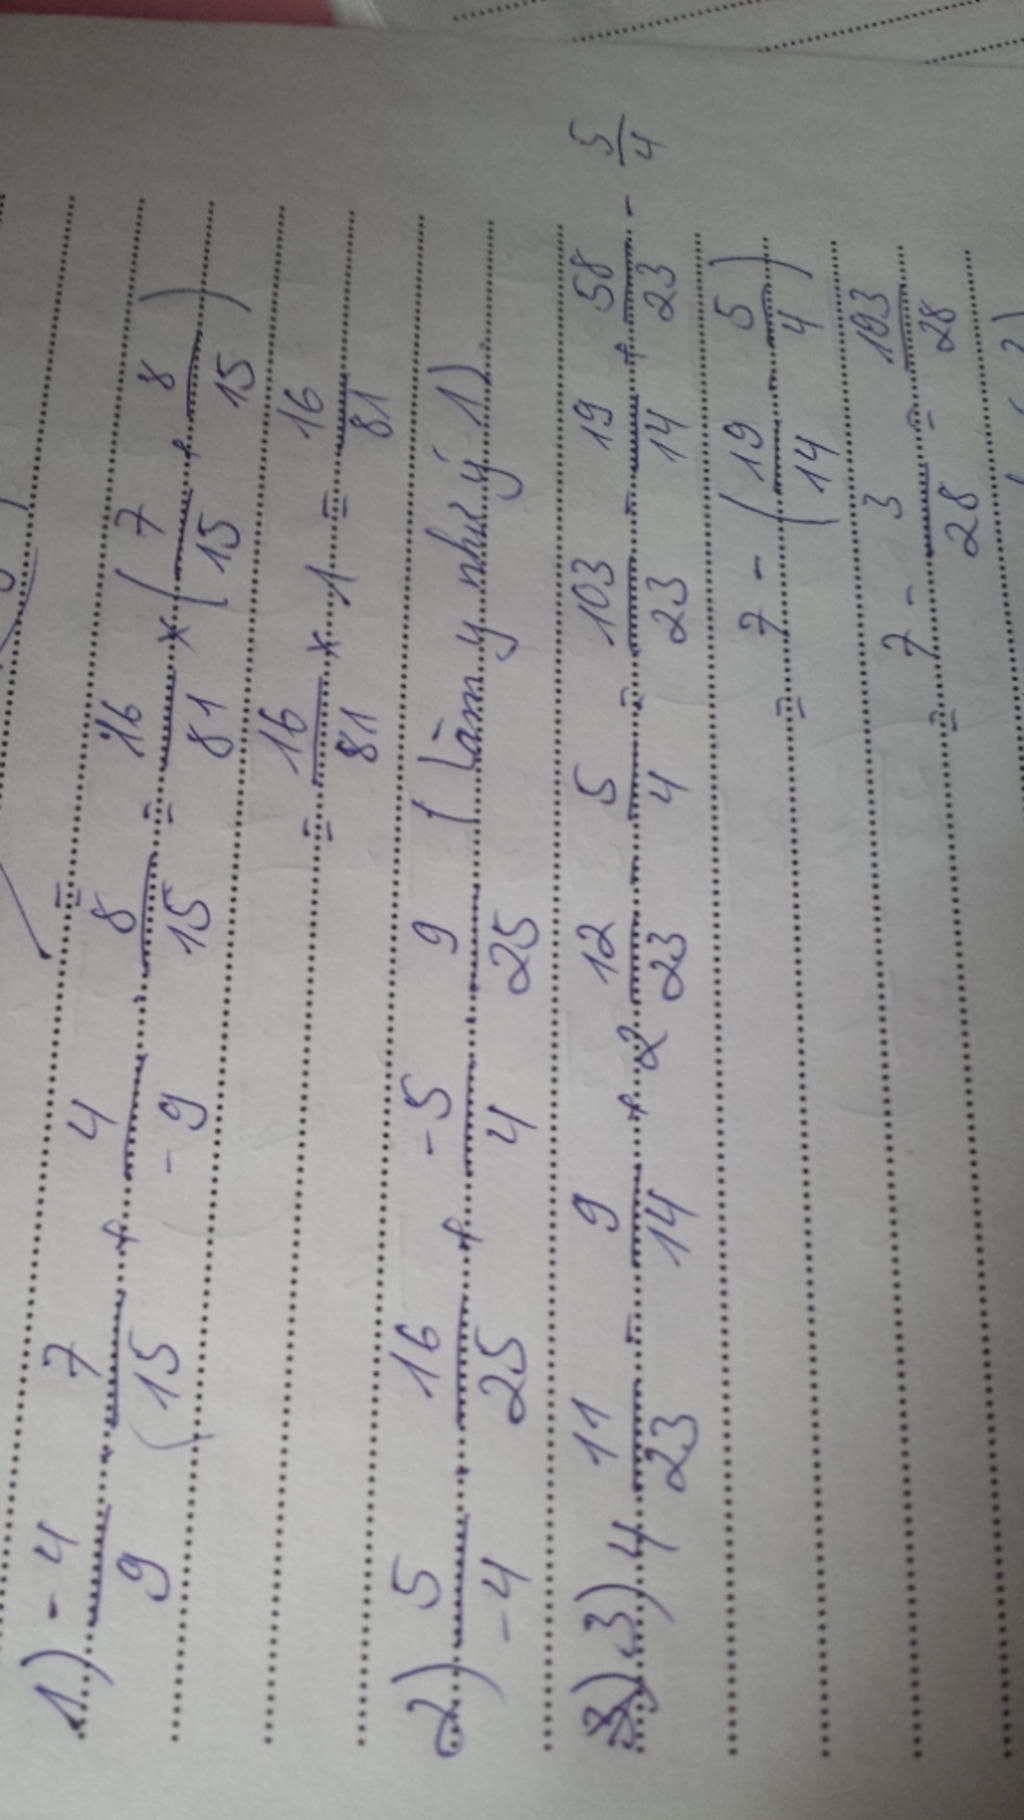 1) -4/9 . 7/(15 + 4/-9 . 8/15 = 16/81 × (7/15 + 8/15)
= 16/81 × 1 = 16/81
2) 5/-4 . 16/25 + -5/4 . 9/25 (làm y như ý 1)
3) 4 11/23 - 9/14 + 2 12/23 - 5/4 = 103/23 - 19/14 + 58/23 - 5/4
= 7 - (19/14 - 5/4)
= 7 - 3/28 = 193/28